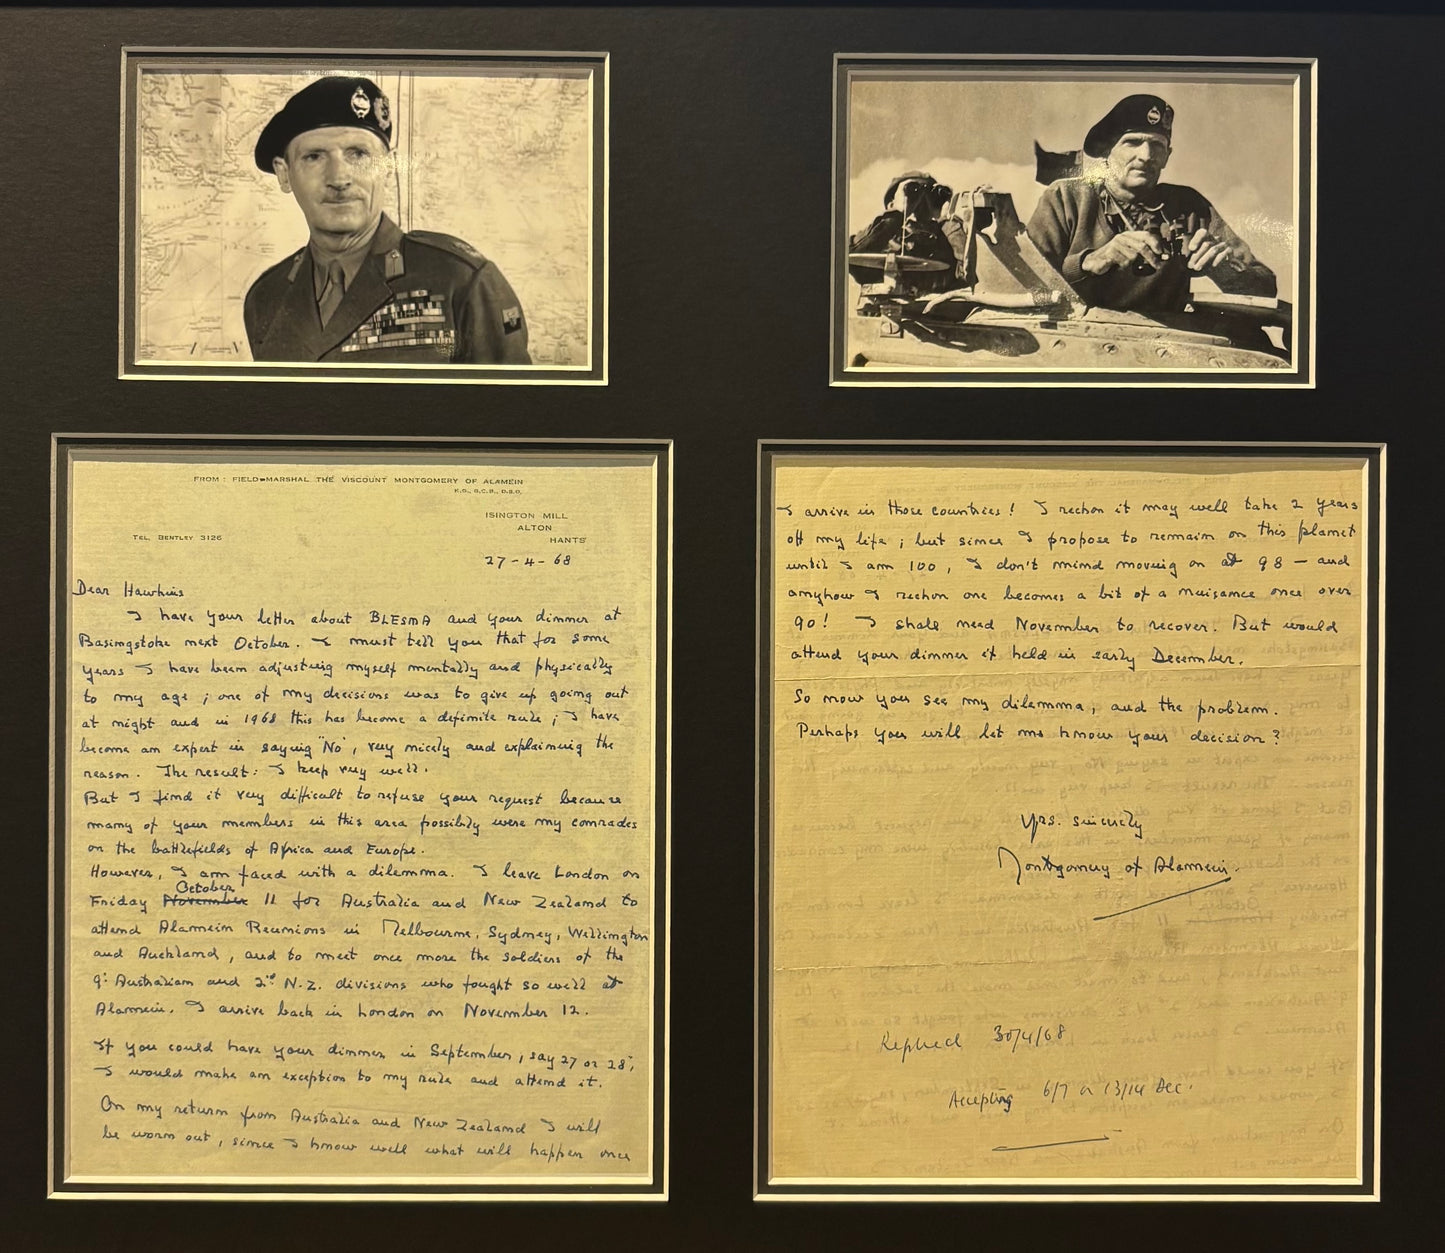 FROM : FIELD-MARSHAL THE VISCOUNT MONTGOMERY OF ALAMEIN
K.G., G.C.B., D.S.O.
ISINGTON MILL
ALTON
HANTS
TEL. BENTLEY 3126
27-4-68
Dear Hawkins
I have your letter about BLESMA and your dinner at
Basingstoke next October. I must tell you that for some
years I have been adjusting myself mentally and physically
to my age ; one of my decisions was to give up going out
at night and in 1968 this has become a definite rule ; I have
become an expert in saying "No", very nicely and explaining the
reason. The result: I keep very well.
But I find it very difficult to refuse your request because
many of your members in this area possibly were my comrades
on the battlefields of Africa and Europe.
However, I am faced with a dilemma. I leave London on
October
Friday November 11 for Australia and New Zealand to
attend Alamein Reunions in Melbourne, Sydney, Wellington
and Auckland, and to meet once more the soldiers of the
9: Australian and 2nd N.Z. divisions who fought so well at
Alamein. I arrive back in London on November 12.
If you could have your dinner in September, say 27 or 28,
I would make an exception to my rule and attend it.
On my return from Australia and New Zealand I will
be worn out, since I know well what will happen once
I arrive in those countries! I reckon it may well take 2 years
off my life ; but since I propose to remain on this planet
until I am 100, I don't mind moving on at 98 - and
anyhow I reckon one becomes a bit of a nuisance once over
90! I shall need November to recover. But would
attend your dinner if held in early December.
So now you see my dilemma; and the problem.
Perhaps you will let me know your decision?
Yrs. sincerely
Montgomery of Alamein.
Replied 30/4/68
Accepting 6/7 or 13/14 Dec.